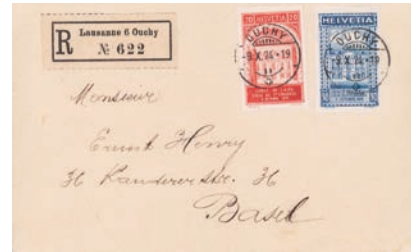 R
Lausanne 6 Ouchy
№ 622
20 HELVETIA 20
OUCHY
-9.X.24.-19
HELVETIA
OUCHY
-9.X.24.-19
Monsieur
Ernest Henry
36 Kandererstr. 36
Basel